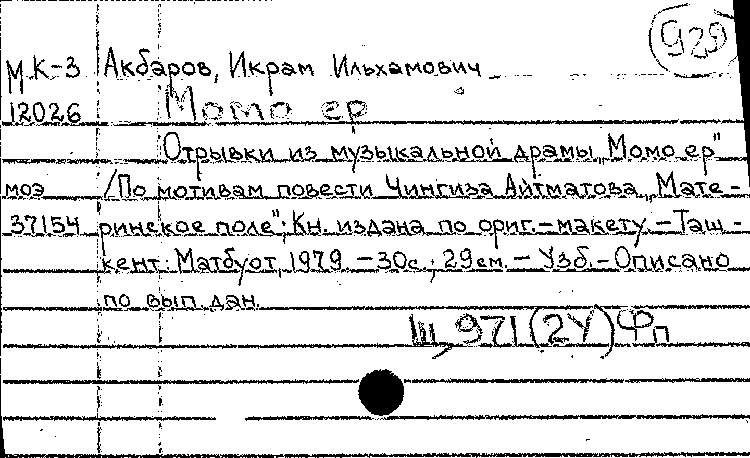 929
М.К-3 Акбаров, Икрам Ильхамович
12026 Момо ер
Отрывки из музыкальной драмы „Момо ер"
моэ /По мотивам повести Чингиза Айтматова „Мате-
37154 ринское поле"; Кн. издана по ориг.-макету. - Таш-
кент: Матбуот, 1979. - 30с.; 29см. - Узб. - Описано
по вып. дан.
Щ,971(2У)Фп